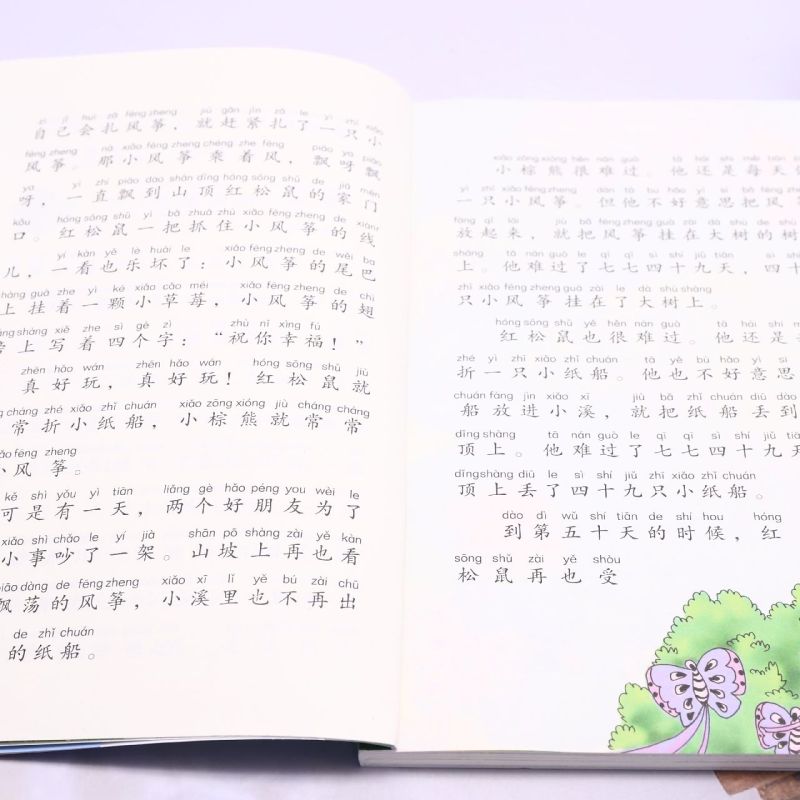 zì jǐ huì zā fēng zheng jiù gǎn jǐn zā le yì zhī xiǎo
自己会扎风筝，就赶紧扎了一只小
fēng zheng nà xiǎo fēng zheng chéng zhe fēng piāo ya piāo
风筝。那小风筝乘着风，飘呀飘
ya yì zhí piāo dào shān dǐng hóng sōng shǔ de jiā mén
呀，一直飘到山顶红松鼠的家门
kǒu hóng sōng shǔ yì bǎ zhuā zhù xiǎo fēng zheng de xiàn
口。红松鼠一把抓住小风筝的线
yí kàn yě lè huài le xiǎo fēng zheng de wěi ba
儿，一看也乐坏了：小风筝的尾巴
shàng guà zhe yì kē xiǎo cǎo méi xiǎo fēng zheng de chì
上挂着一颗小草莓，小风筝的翅
bǎng shàng xiě zhe sì gè zì zhù nǐ xìng fú
膀上写着四个字：“祝你幸福！”
zhēn hǎo wán zhēn hǎo wán hóng sōng shǔ jiù
真好玩，真好玩！红松鼠就
cháng zhé xiǎo zhǐ chuán xiǎo zōng xióng jiù cháng cháng
常折小纸船，小棕熊就常常
xiǎo fēng zheng
小风筝。
kě shì yǒu yì tiān liǎng gè hǎo péng you wèi le
可是有一天，两个好朋友为了
xiǎo shì chǎo le yí jià shān pō shàng zài yě kàn
小事吵了一架。山坡上再也看
piāo dàng de fēng zheng xiǎo xī lǐ yě bú zài chū
飘荡的风筝，小溪里也不再出
de zhǐ chuán
的纸船。
xiǎo zōng xióng hěn nán guò tā hái shì měi tiān
小棕熊很难过。他还是每天
yì zhī xiǎo fēng zheng dàn tā bù hǎo yì si bǎ fēng
一只小风筝。但他不好意思把风
fàng qǐ lái jiù bǎ fēng zheng guà zài dà shù de shù
放起来，就把风筝挂在大树的树
shàng tā nán guò le qī qī sì shí jiǔ tiān sì shí
上。他难过了七七四十九天，四十
zhī xiǎo fēng zheng guà zài le dà shù shàng
只小风筝挂在了大树上。
hóng sōng shǔ yě hěn nán guò tā hái shì
红松鼠也很难过。他还是
zhé yì zhī xiǎo zhǐ chuán tā yě bù hǎo yì si
折一只小纸船。他也不好意思
chuán fàng jìn xiǎo xī jiù bǎ zhǐ chuán diū dào
船放进小溪，就把纸船丢到
dǐng shàng tā nán guò le qī qī sì shí jiǔ tiān
顶上。他难过了七七四十九天
dǐng shàng diū le sì shí jiǔ zhī xiǎo zhǐ chuán
顶上丢了四十九只小纸船。
dào dì wǔ shí tiān de shí hou hóng
到第五十天的时候，红
sōng shǔ zài yě shòu
松鼠再也受